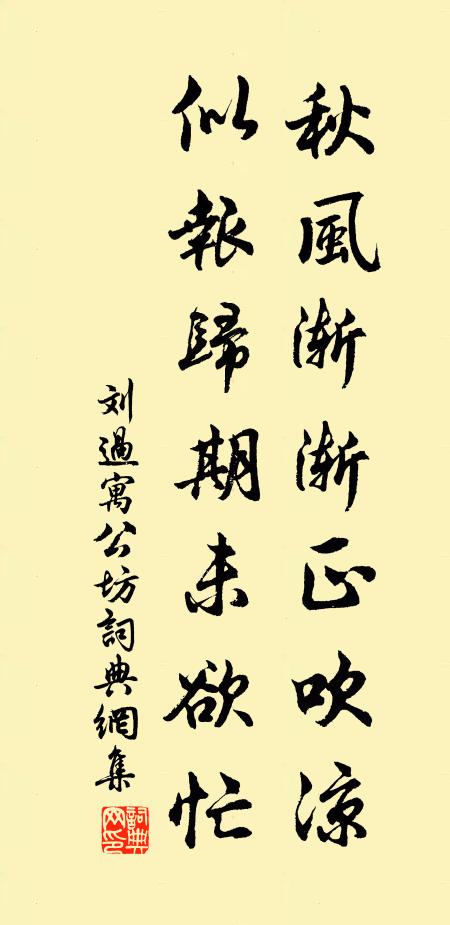 秋風渐渐正吹凉
似報歸期未欲忙
刘過寓公坊詞典網集
詞典网印